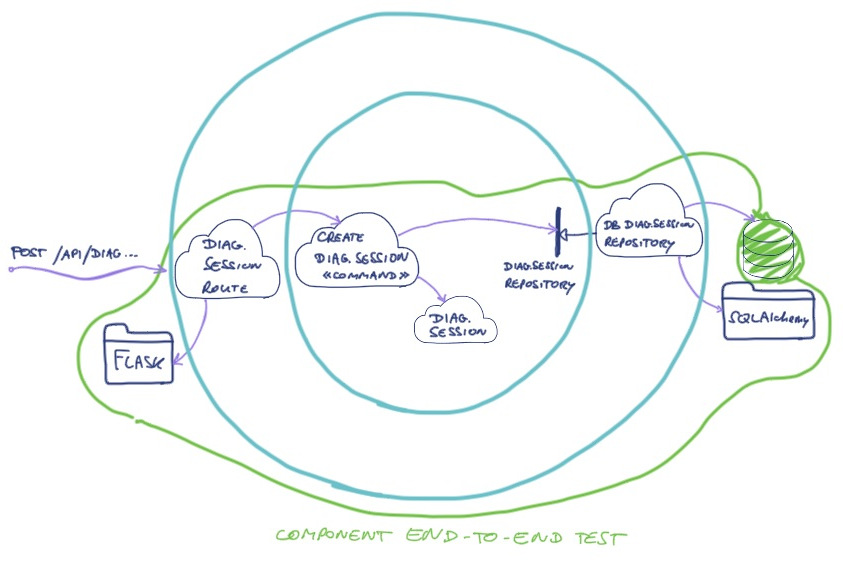 POST /API/DIAG...
DIAG.
SESSION
ROUTE
FLASK
CREATE
DIAG. SESSION
«COMMAND»
DIAG.
SESSION
DIAG.SESSION
REPOSITORY
DB DIAG.SESSION
REPOSITORY
SQLAlchemy
COMPONENT END-TO-END TEST